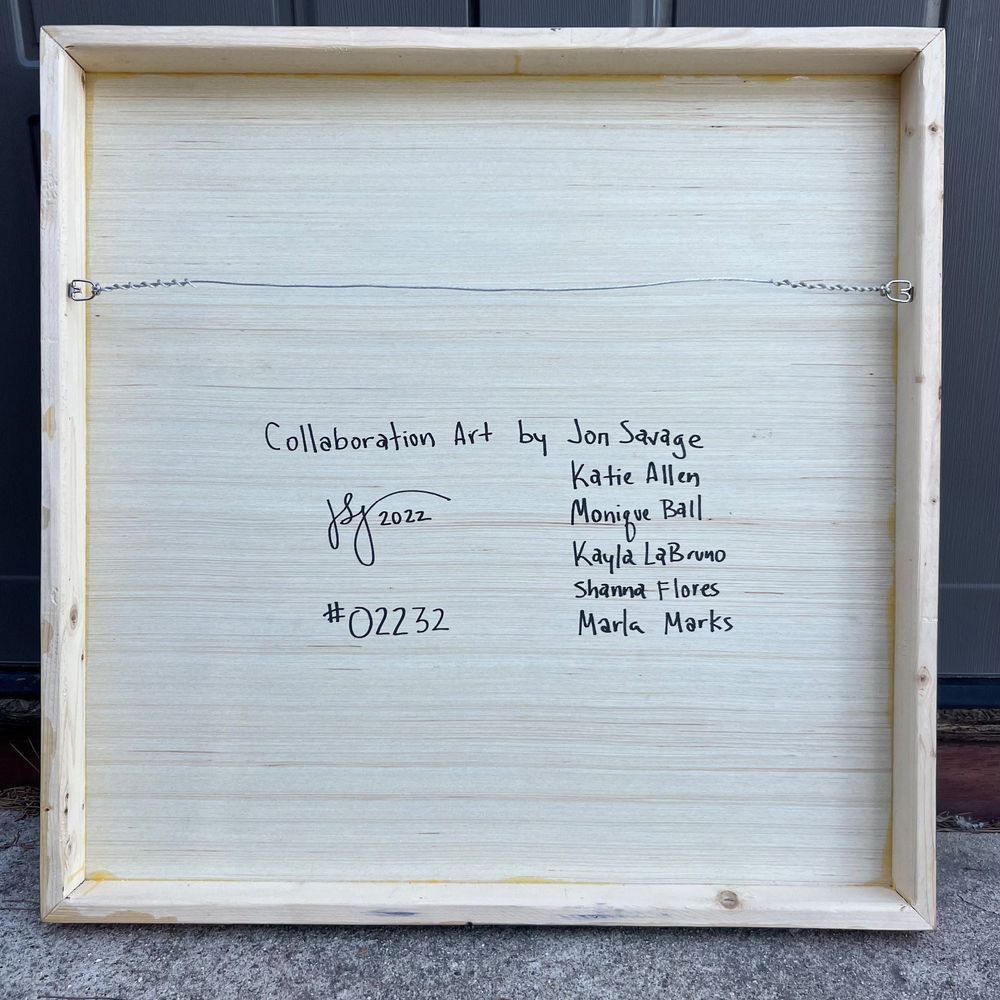 Collaboration Art by Jon Savage
Katie Allen
Monique Ball
Kayla LaBruno
Shanna Flores
Marla Marks
2022
#02232